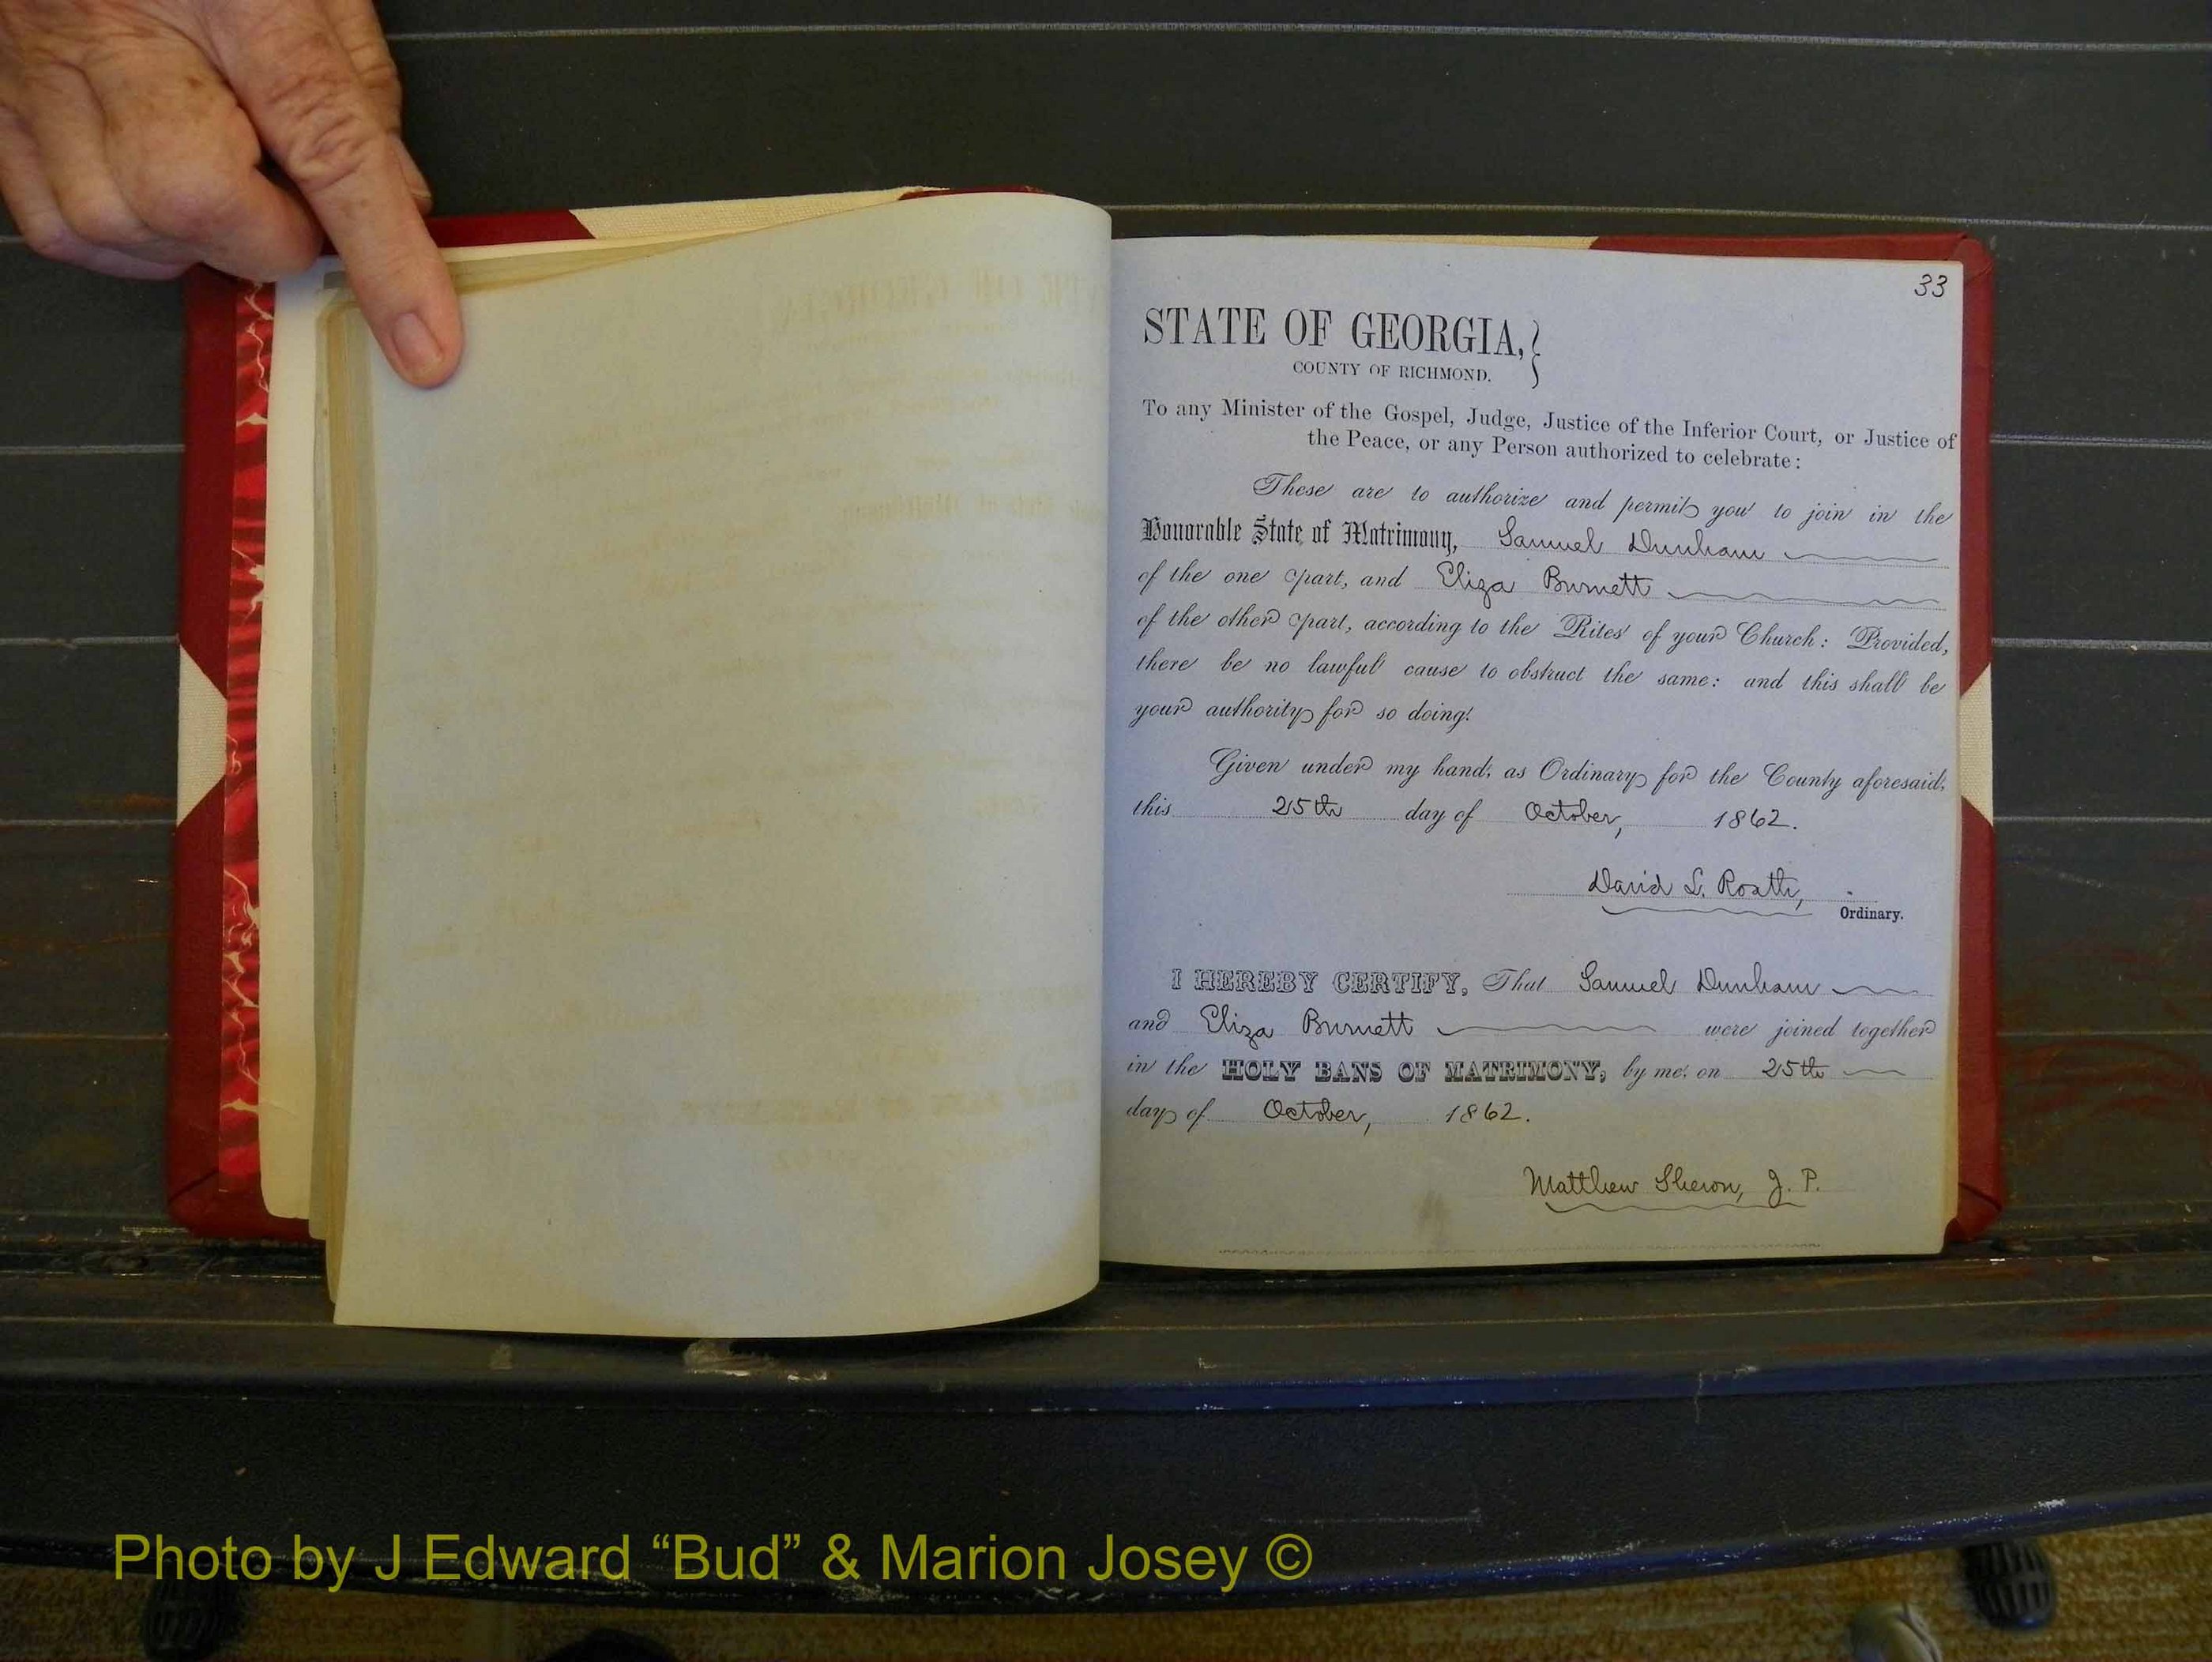 33
STATE OF GEORGIA,
COUNTY OF RICHMOND.
To any Minister of the Gospel, Judge, Justice of the Inferior Court, or Justice of
the Peace, or any Person authorized to celebrate:
These are to authorize and permit you to join in the
Honorable State of Matrimony, Samuel Dunham
of the one part, and Eliza Burnett
of the other part, according to the Rites of your Church: Provided,
there be no lawful cause to obstruct the same: and this shall be
your authority for so doing.
Given under my hand, as Ordinary for the County aforesaid,
this 25th day of October, 1862.
David L. Roath,
Ordinary.
I HEREBY CERTIFY, That Samuel Dunham
and Eliza Burnett were joined together
in the HOLY BANS OF MATRIMONY, by me, on 25th
day of October, 1862.
Matthew Sheron, J. P.
Photo by J Edward “Bud” & Marion Josey ©